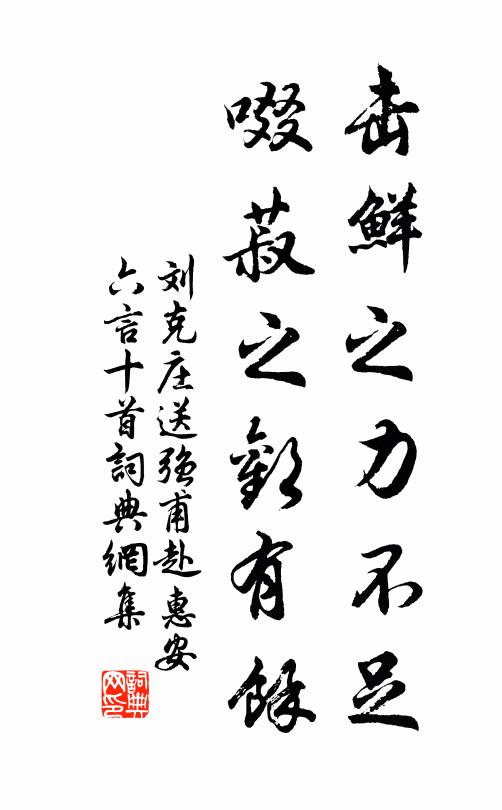 击鮮之力不足
啜菽之歡有餘
刘克庄送强甫赴惠安
六言十首詞典網集
詞典
网印